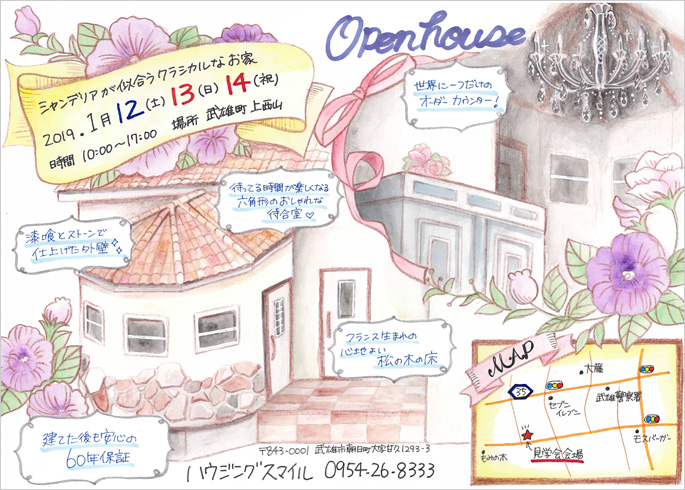 Openhouse
シャンデリアが似合うクラシカルなお家
2019.1月12(土)13(日)14(祝)
時間 10:00〜17:00 場所 武雄町上西山
世界に一つだけの
オーダーカウンター!
待ってる時間が楽しくなる
六角形のおしゃれな
待合室♡
漆喰とストーンで
仕上げた外壁
フランス生まれの
心地よい松の木の床
建てた後も安心の
60年保証
MAP
35
大藤
セブン
イレブン
武雄警察署
モスバーガー
もみの木
見学会会場
〒843-0001 武雄市朝日町大字甘久1293-3
ハウジングスマイル 0954-26-8333